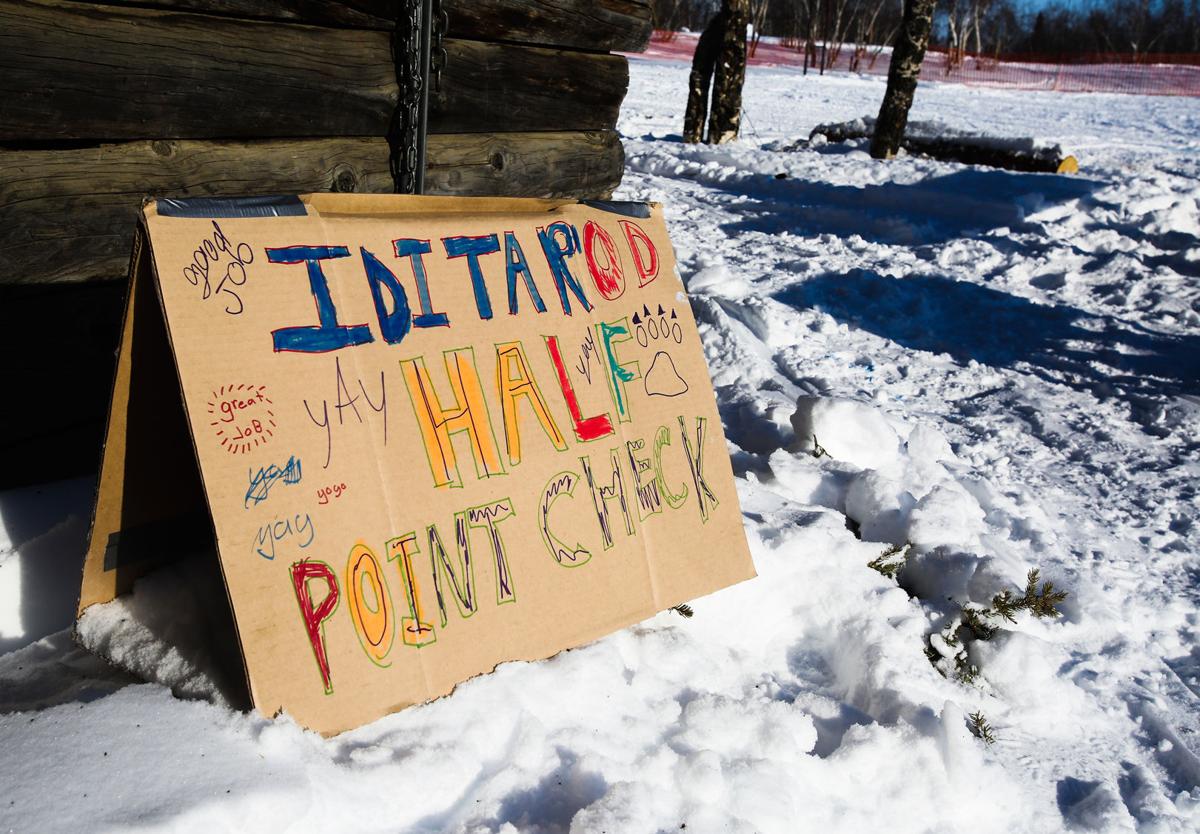 good
JOB
IDITAROD
YAY
HALF
yay
great
JOB
yogo
yay
POINT CHECK